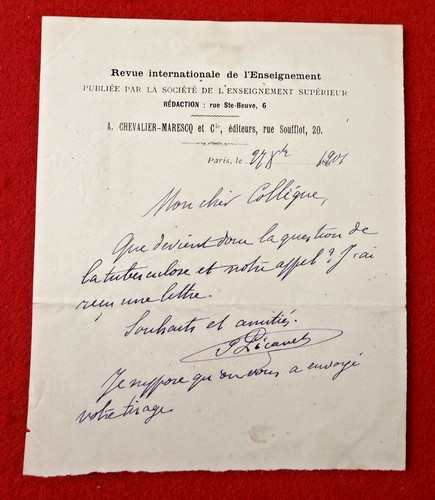 Revue internationale de l'Enseignement
PUBLIÉE PAR LA SOCIÉTÉ DE L'ENSEIGNEMENT SUPÉRIEUR
RÉDACTION : rue Ste-Beuve, 6
A. CHEVALIER-MARESCQ et Cie, éditeurs, rue Soufflot, 20.
Paris, le 27 1901
Mon cher Collègue,
Que devient donc la question de
la tuberculose et notre appel ? J'ai
reçu une lettre.
Souhaits et amitiés.
Picavet
Je suppose qu'on vous a envoyé
votre tirage